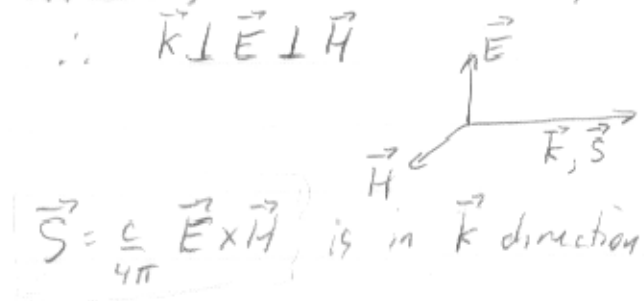 ∴ k⃗ ⊥ E⃗ ⊥ H⃗
E⃗
k⃗, S⃗
H⃗
S⃗ = c/4π E⃗ × H⃗ is in k⃗ direction